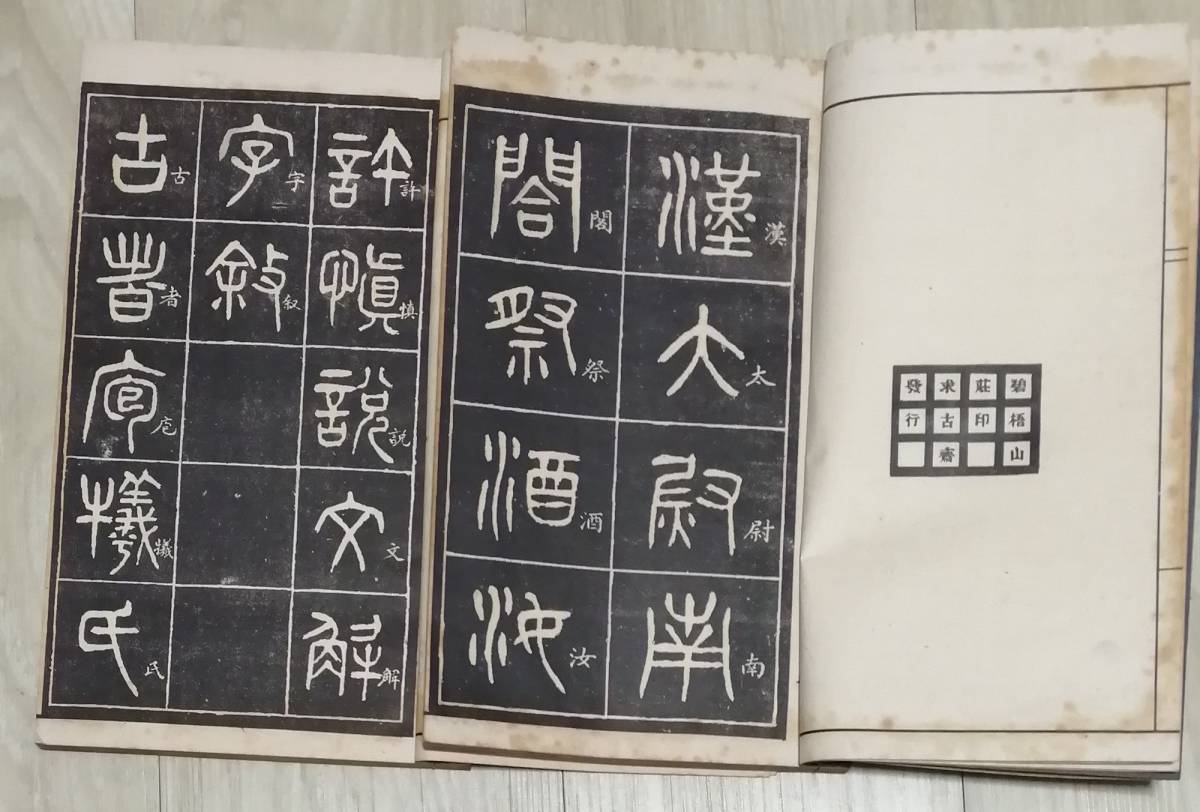 碧梧山
莊印
求古齋
發行
漢大尉南
漢太尉南
閤祭酒汝
閣祭酒汝
許慎說文解
許慎説文解
字敘
字叙
古者庖犧氏
古者庖犧氏